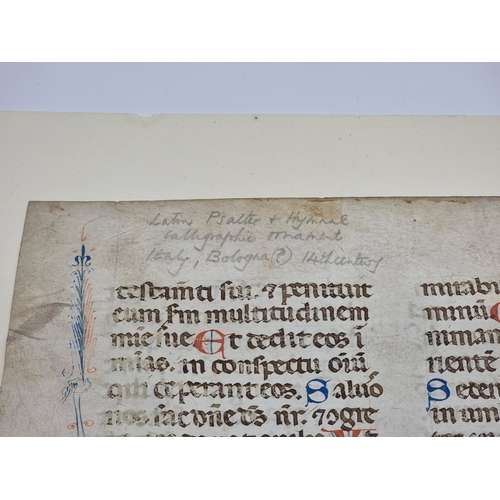 Latin Psalter + Hymnal
Calligraphic ornament
Italy, Bologna(?) 14th century
testam̄ti sui. ⁊ penituit
eum sm̄ multitudinem
mīe sue Et dedit eos ī
mīas. in conspectu oīū
qui ceperant eos. Saluo
nos fac dn̄e ds̄ nr̄. ⁊ ogre
mirabi
minuī
inman
rientē
Seten
in um